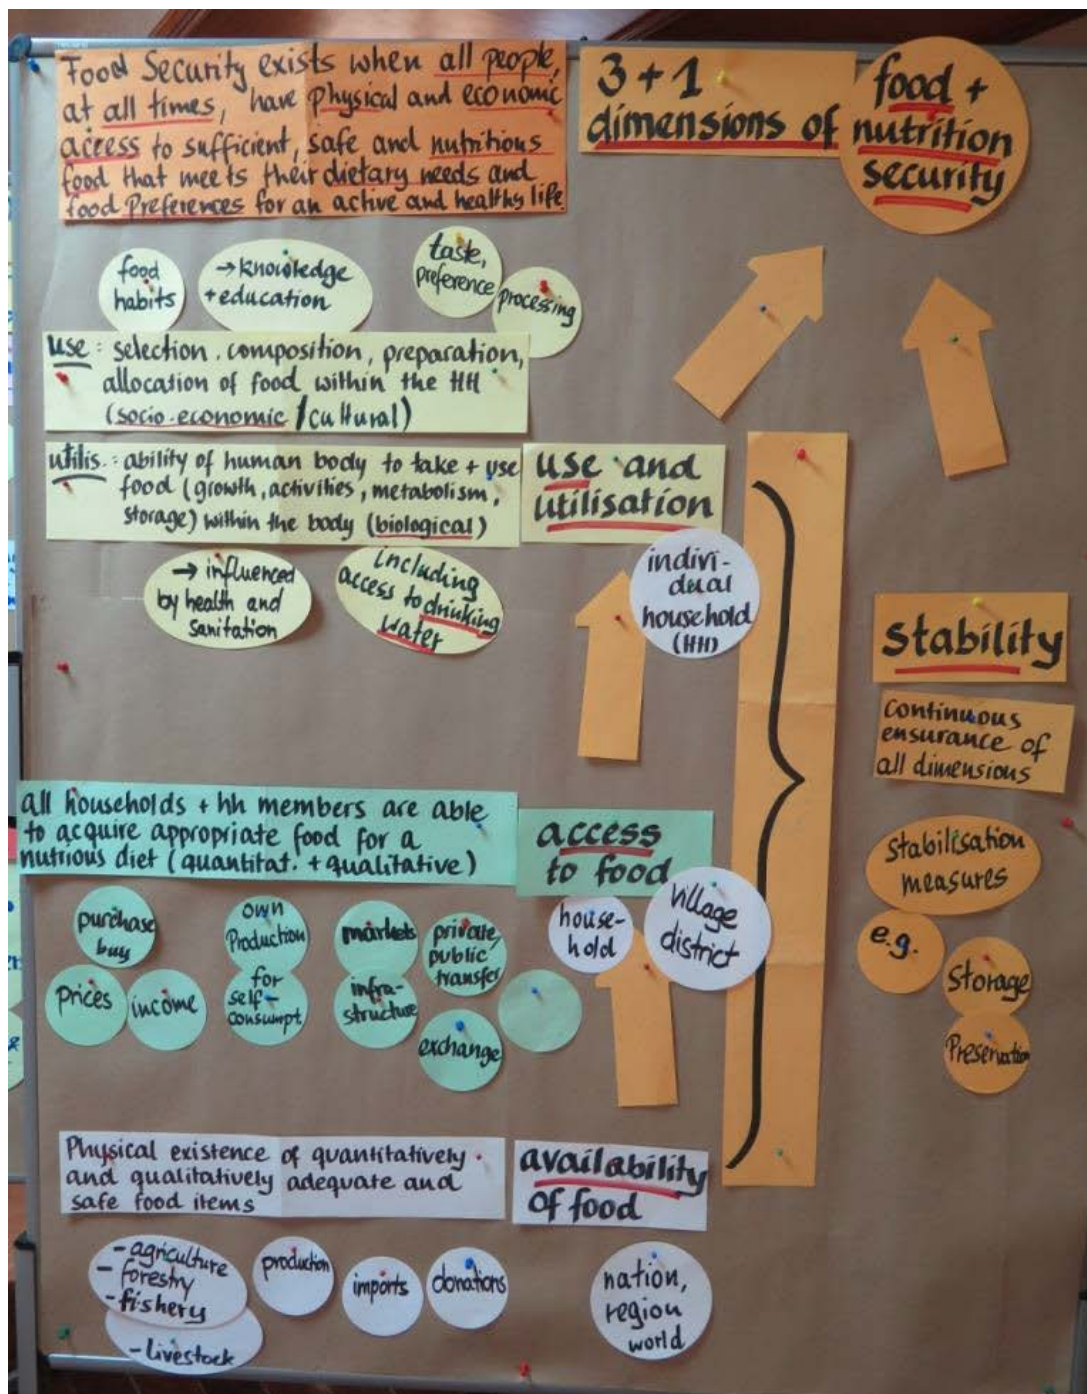 Food Security exists when all people,
at all times, have physical and economic
access to sufficient, safe and nutritious
food that meets their dietary needs and
food Preferences for an active and healthy life.
3+1
dimensions of
food +
nutrition
security
food
habits
→ knowledge
+ education
taste,
preference
processing
use: selection, composition, preparation,
allocation of food within the HH
(socio-economic / cultural)
utilis.: ability of human body to take + use
food (growth, activities, metabolism,
storage) within the body (biological)
use and
utilisation
indivi-
dual
household
(HH)
→ influenced
by health and
sanitation
including
access to drinking
water
stability
continuous
ensurance of
all dimensions
Stabilisation
measures
e.g.
Storage
Preservation
all households + hh members are able
to acquire appropriate food for a
nutrious diet (quantitat. + qualitative)
access
to food
house-
hold
village
district
purchase
buy
prices
income
own
Production
for
self-
consumpt.
markets
infra-
structure
private,
public
transfer
exchange
Physical existence of quantitatively
and qualitatively adequate and
safe food items
availability
of food
- agriculture
- forestry
- fishery
- livestock
production
imports
donations
nation,
region
world